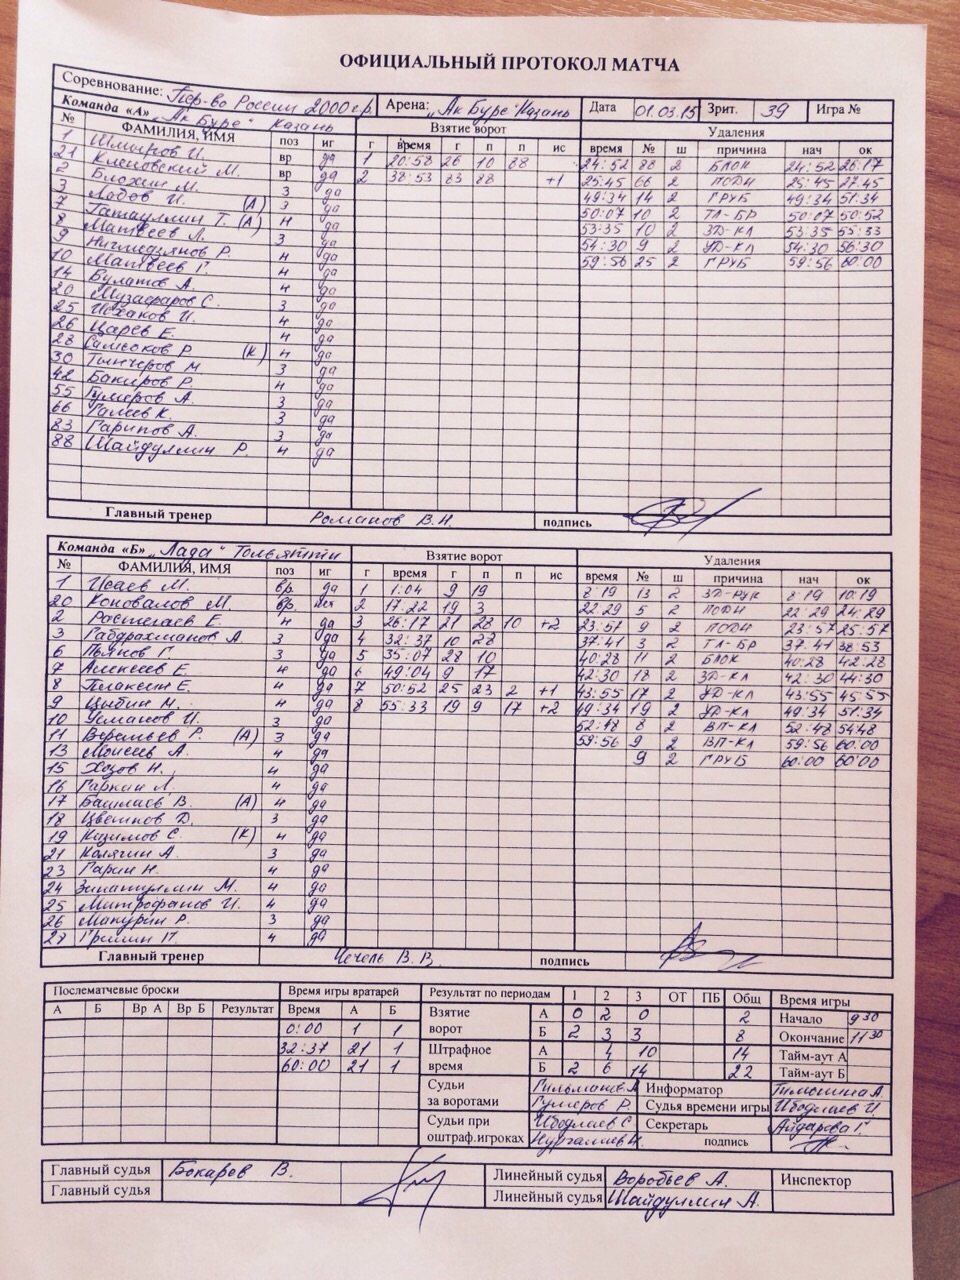 ОФИЦИАЛЬНЫЙ ПРОТОКОЛ МАТЧА
Соревнование: Пер-во России 2000 г.р. Арена: "Ак Буре" Казань Дата 01.03.15 Зрит. 39 Игра №
Команда «А» "Ак Буре" Казань Взятие ворот Удаления
№ ФАМИЛИЯ, ИМЯ поз иг г время г п п ис время № ш причина нач ок
1 И. вр да 1 20:58 26 10 88 24:52 88 2 БЛОК 24:52 26:17
21 Кленовский М. вр да 2 38:53 83 88 +1 25:45 66 2 ПОДН 25:45 27:45
2 Блохин М. З да 49:34 14 2 ГРУБ 49:34 51:34
3 Лобов И. (А) З да 50:07 10 2 ТЛ-БР 50:07 50:52
7 Татауллин Т. (А) Н да 53:35 10 2 ЗД-КЛ 53:35 55:33
8 Матвеев Л. З да 54:30 9 2 УД-КЛ 54:30 56:30
9 Нигмедзянов Р. Н да 59:56 25 2 ГРУБ 59:56 60:00
10 Матвеев Г. Н да
14 Булатов А. Н да
20 Музафаров С. З да
25 Исхаков И. Н да
26 Царев Е. Н да
28 Самсоков Р. (К) Н да
30 Тынчеров М З да
42 Бакиров Р. Н да
55 Гумеров А. З да
66 Галеев К. З да
83 Гарипов А. З да
88 Шайдуллин Р. Н да
Главный тренер Романов В.Н. подпись
Команда «Б» "Лада" Тольятти Взятие ворот Удаления
№ ФАМИЛИЯ, ИМЯ поз иг г время г п п ис время № ш причина нач ок
1 Исаев М. вр. да 1 1:04 9 19 8:19 13 2 ЗД-РУК 8:19 10:19
20 Коновалов М. вр. нет 2 17:22 19 3 22:29 5 2 ПОДН 22:29 24:29
2 Растегаев Е. Н да 3 26:17 21 28 10 +2 23:57 9 2 ПОДН 23:57 25:57
3 Габдрахманов А. З да 4 32:37 10 22 37:41 3 2 ТЛ-БР 37:41 38:53
6 Пьянов Г. З да 5 35:07 28 10 40:28 11 2 БЛОК 40:28 42:28
7 Алексеев Е. Н да 6 49:04 9 17 42:30 18 2 ЗД-КЛ 42:30 44:30
8 Плаксин Е. Н да 7 50:52 25 23 2 +1 43:55 17 2 УД-КЛ 43:55 45:55
9 Цыбин М. Н да 8 55:33 19 9 17 +2 49:34 19 2 УД-КЛ 49:34 51:34
10 Усманов И. З да 52:48 8 2 ВП-КЛ 52:48 54:48
11 Р. (А) З да 59:56 9 2 ВП-КЛ 59:56 60:00
13 Моисеев А. Н да 9 2 ГРУБ 60:00 60:00
15 Хозов Н. Н да
16 Гаркин Л. Н да
17 Башлаев В. (А) Н да
18 Цветков Д. З да
19 Кизимов С. (К) Н да
21 Колячин А. З да
23 Гарин Н. Н да
24 Зинатуллин М. Н да
25 Митрофанов И. Н да
26 Макурин Р. З да
27 Гришин П. Н да
Главный тренер Чечель В.В. подпись
Послематчевые броски Время игры вратарей Результат по периодам 1 2 3 ОТ ПБ Общ Время игры
А Б Вр А Вр Б Результат Время А Б Взятие ворот А 0 2 0 2 Начало 9 30
0:00 1 1 Б 2 3 3 8 Окончание 11 30
32:37 21 1 Штрафное время А 4 10 14 Тайм-аут А
60:00 21 1 Б 2 6 14 22 Тайм-аут Б
Судьи за воротами Гильманов А Информатор Тимошина А.
Гумеров Р. Судья времени игры Ибодлаев И.
Судьи при оштраф.игроках Ибодлаев С Секретарь Айдарова Г.
Нургалиев И. подпись
Главный судья Бокарев В. Линейный судья Воробьев А. Инспектор
Главный судья Линейный судья Шайдуллин А.